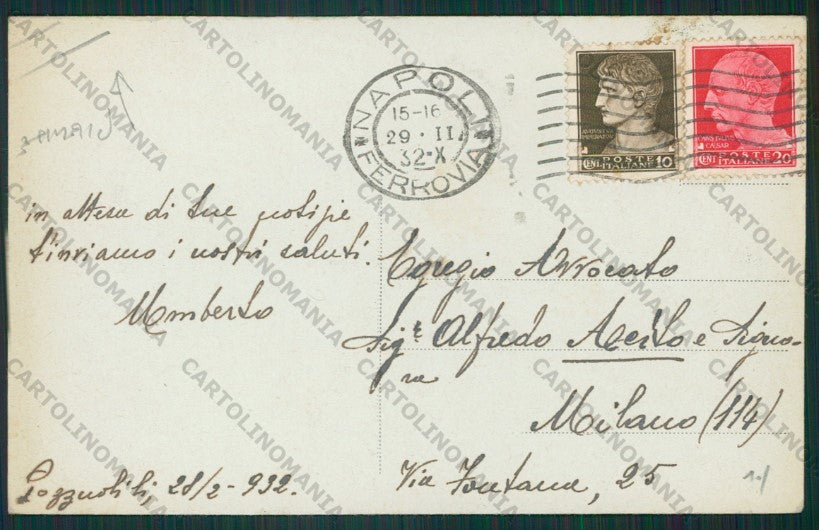 NAPOLI
15-16
29·II
32·X
FERROVIA
POSTE
CENT 10
ITALIANE
CAESAR
POSTE
CENT 20
ITALIANE
in attesa di tue notizie
t'inviamo i nostri saluti.
Umberto
Pozzuoli li, 28/2-932.
Egregio Avvocato
Sigr Alfredo Aceto e Signo-
ra
Milano (114)
Via Fontana, 25
CARTOLINOMANIA